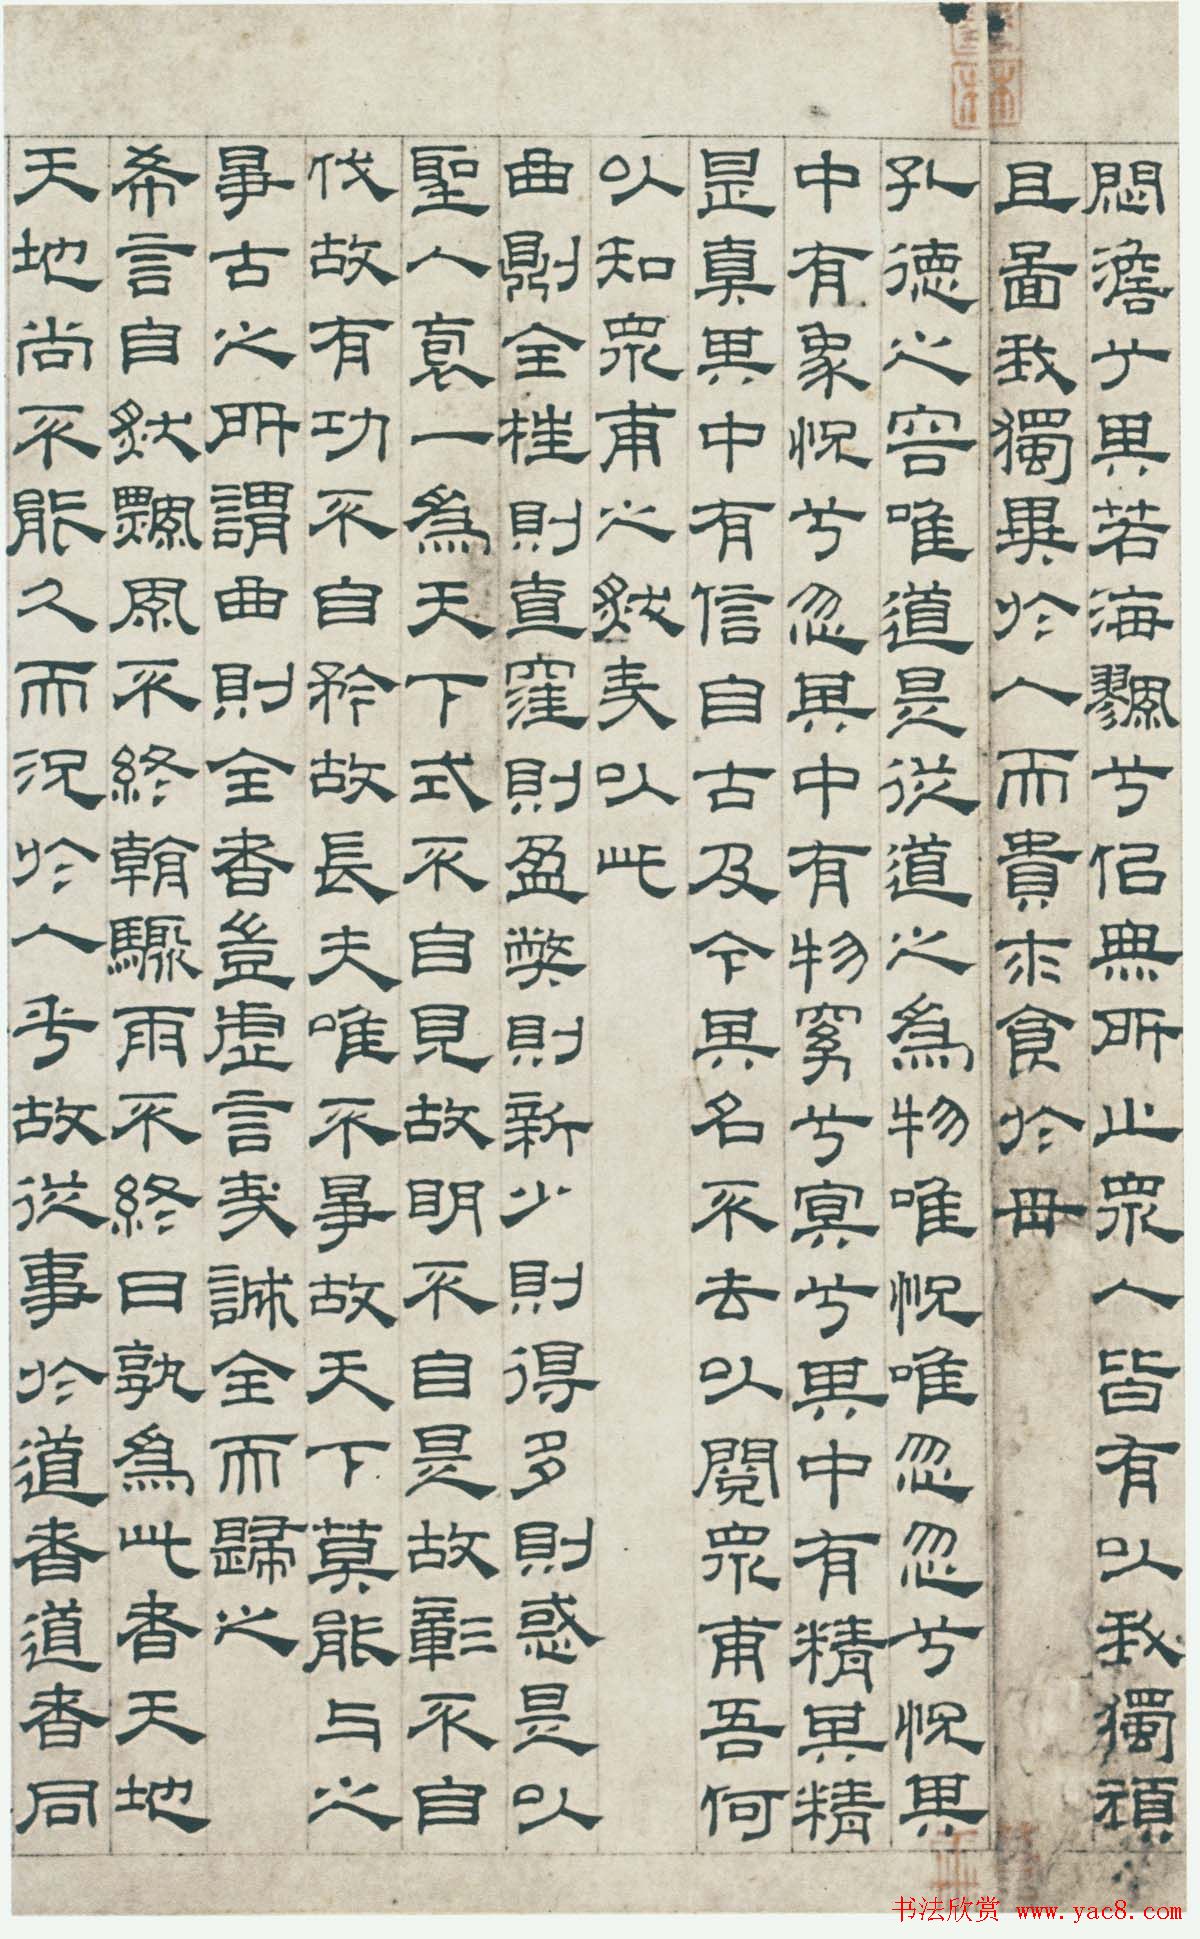 悶澹兮其若海飂兮佀無所止眾人皆有以我獨頑
且啚我獨異於人而貴求食於母
孔德之容唯道是從道之為物唯怳唯忽忽兮怳其
中有象怳兮忽其中有物窈兮冥兮其中有精其精
甚真其中有信自古及今其名不去以閱眾甫吾何
以知眾甫之然哉以此
曲則全枉則直窪則盈弊則新少則得多則惑是以
聖人袌一為天下式不自見故明不自是故彰不自
伐故有功不自矜故長夫唯不爭故天下莫能与之
爭古之所謂曲則全者豈虛言哉誠全而歸之
希言自然飄風不終朝驟雨不終日孰為此者天地
天地尚不能久而況於人乎故從事於道者道者同
书法欣赏 www.yac8.com